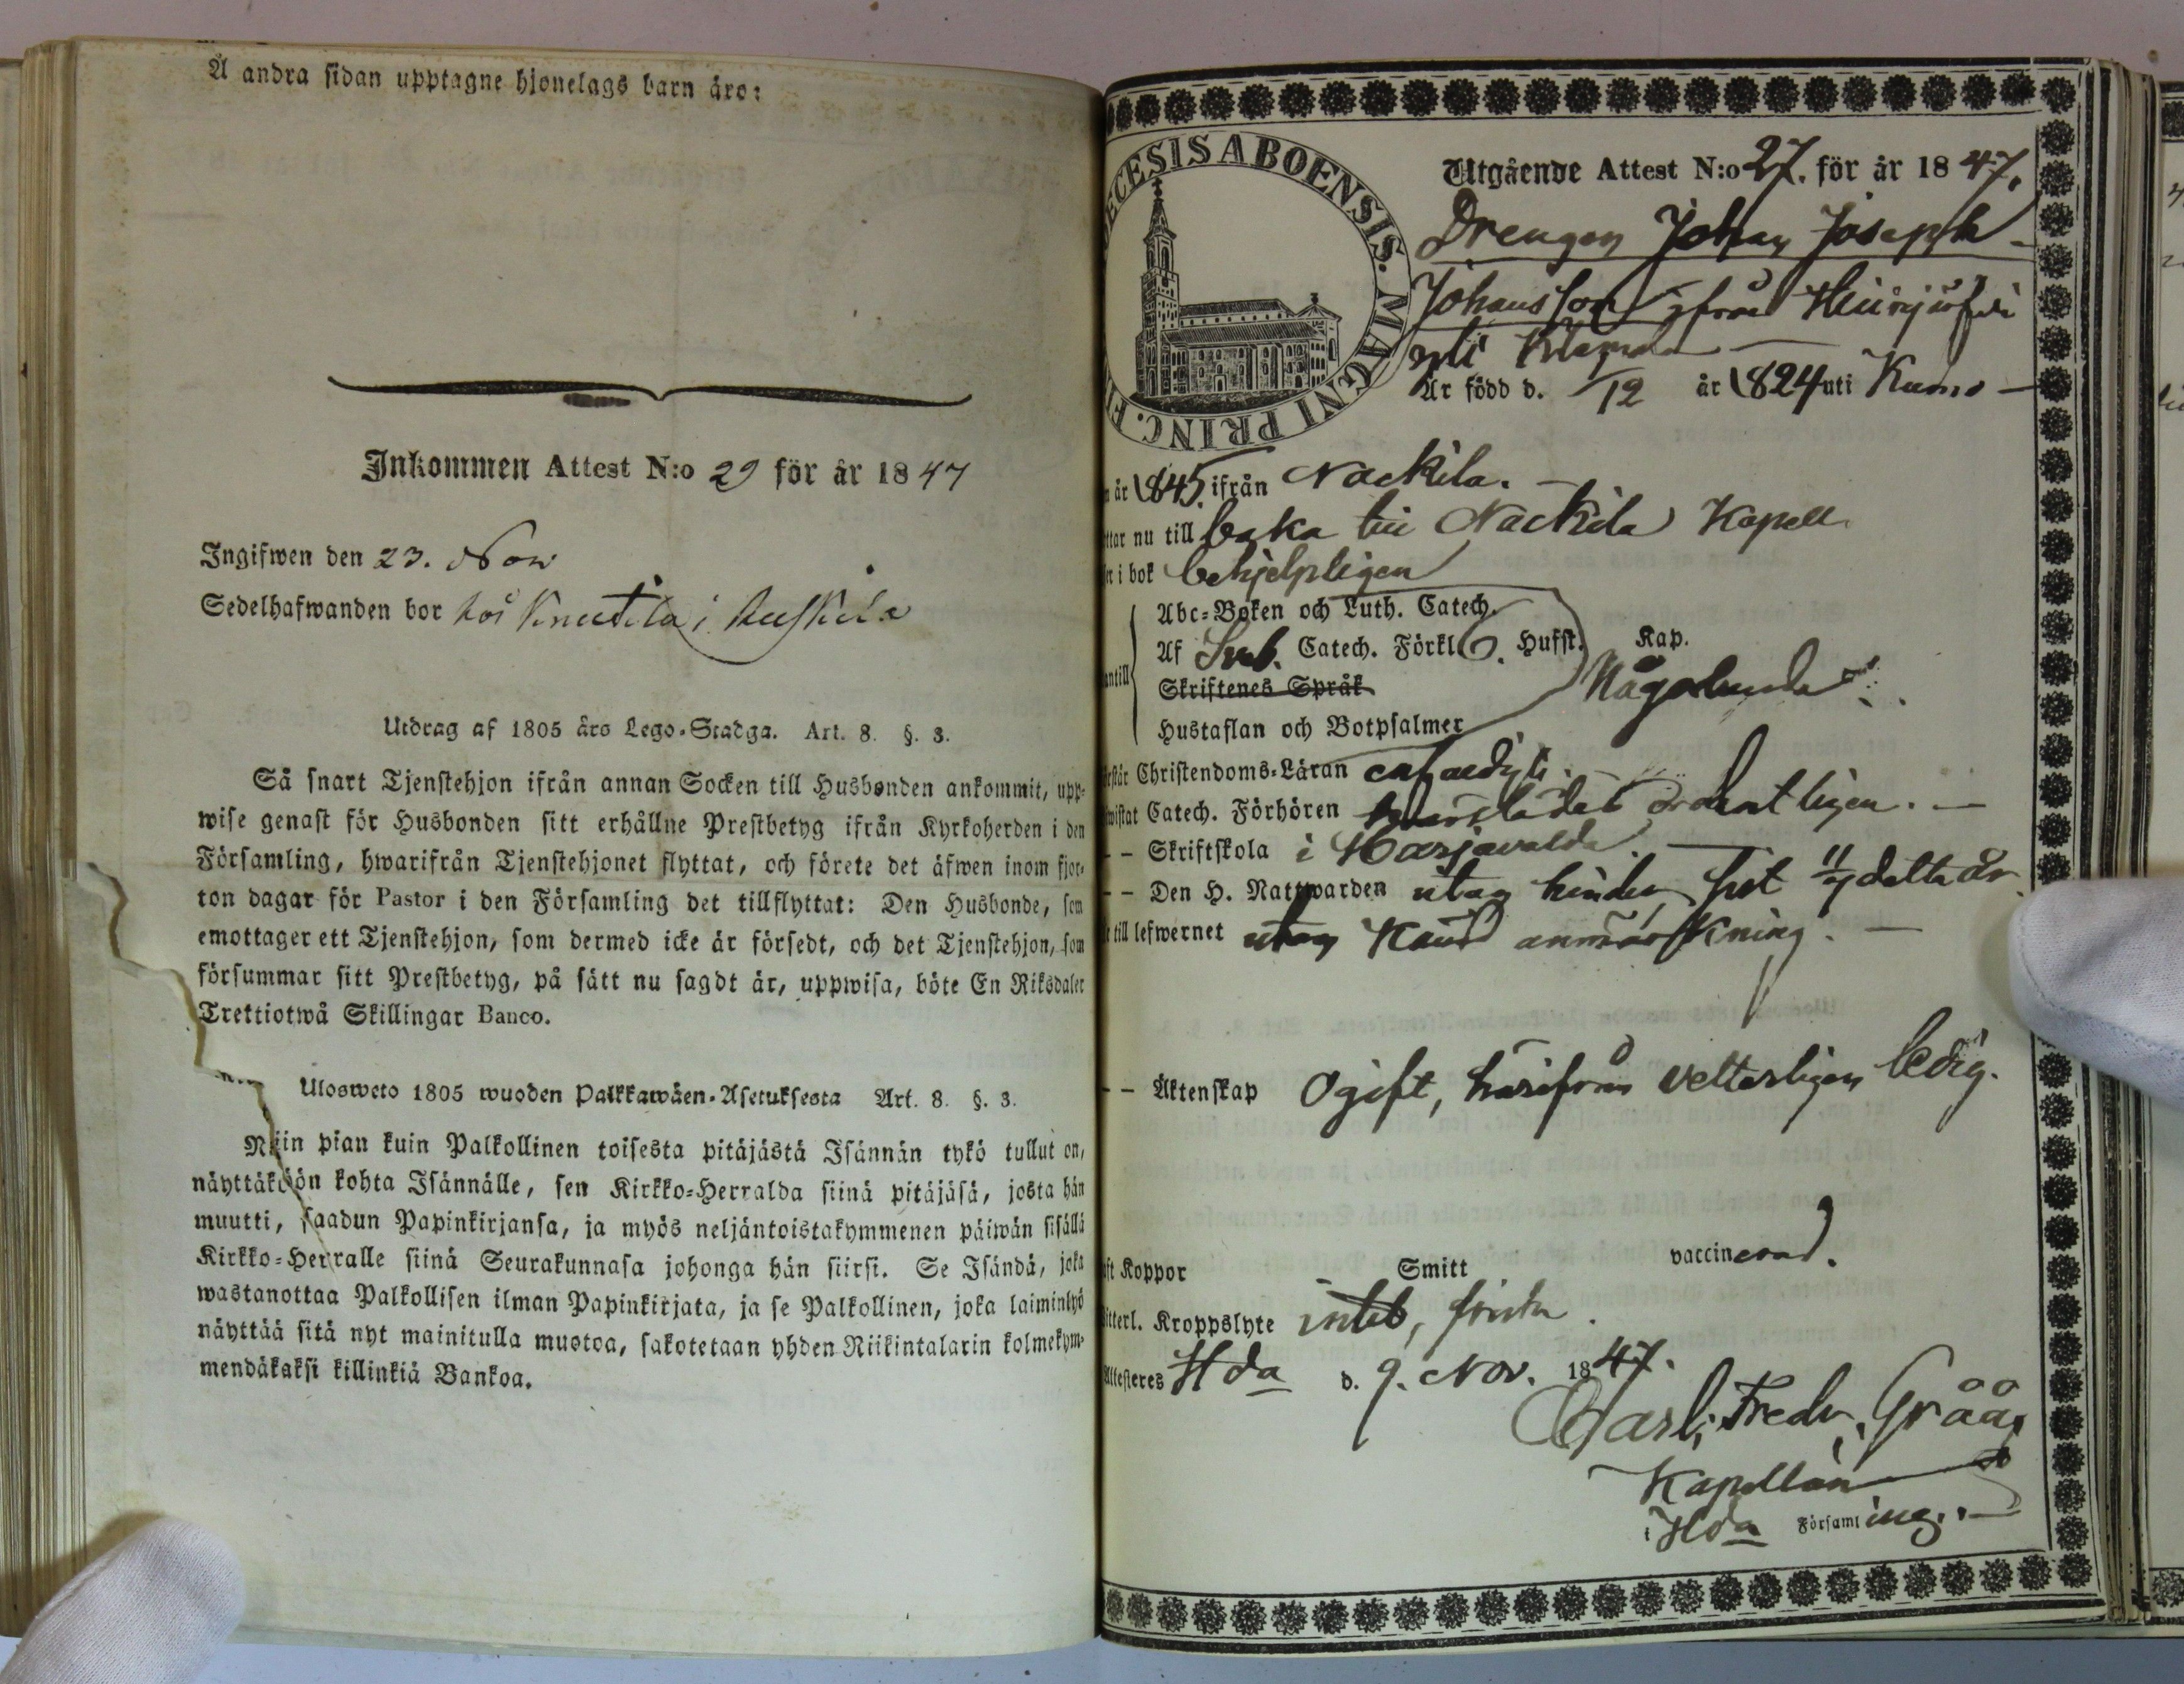 Å andra sidan upptagne hjonelags barn äro:
Inkommen Attest N:o 29 för år 1847
Ingifwen den 23. Nov
Sedelhafwanden bor hos Knuutila i
Utdrag af 1805 års Lego-Stadga. Art. 8. §. 3.
Så snart Tjenstehjon ifrån annan Socken till Husbonden ankommit, upp-
wise genast för Husbonden sitt erhållne Prestbetyg ifrån Kyrkoherden i den
Församling, hwarifrån Tjenstehjonet flyttat, och förete det äfwen inom fjor-
ton dagar för Pastor i den Församling det tillflyttat: Den Husbonde, som
emottager ett Tjenstehjon, som dermed icke är försedt, och det Tjenstehjon, som
försummar sitt Prestbetyg, på sätt nu sagdt är, uppwisa, böte En Riksdaler
Trettiotwå Skillingar Banco.
Ulosweto 1805 wuoden Palkkawäen-Asetuksesta Art. 8. §. 3.
Niin pian kuin Palkollinen toisesta pitäjästä Isännän tykö tullut on,
näyttäköön kohta Isännälle, sen Kirkko-Herralda siinä pitäjäsä, josta hän
muutti, saadun Papinkirjansa, ja myös neljäntoistakymmenen päiwän sisällä
Kirkko-Herralle siinä Seurakunnasa johonga hän siirsi. Se Isändä, joka
wastanottaa Palkollisen ilman Papinkirjata, ja se Palkollinen, joka laiminlyö
näyttää sitä nyt mainitulla muotoa, sakotetaan yhden Riikintalarin kolmekym-
mendäkaksi killinkiä Bankoa.
ECESIS ABOENSIS. MAGNI PRINC. FI
Utgående Attest N:o 27. för år 1847.
Drengen Johan Joseph
Johansson ifrån
uti
Är född d. /12 år 1824 uti Kumo
år 1845. ifrån Nackila.
ttar nu till baka till Nackila Kapell
er i bok behjelpligen
Abc-Boken och Luth. Catech.
Af Sveb. Catech. Förkl. O. Husst. Kap.
antill Skriftenes Språk Någorlunda
Hustaflan och Botpsalmer
rstår Christendoms-Läran enfaldigt.
wistat Catech. Förhören ordentligen.
- - Skriftskola i Harjavalda
- - Den H. Nattwarden utan hinder, sist detta år
till lefwernet utan känd anmärkning.
- - Äktenskap Ogift, härifrån vetterligen ledig.
ft Koppor Smitt vaccinerad.
itterl. Kroppslyte intet,
Attesteres Hda d. 9. Nov. 1847.
Carl Fredr. Gråå
Kapellan
i Hda Församling.